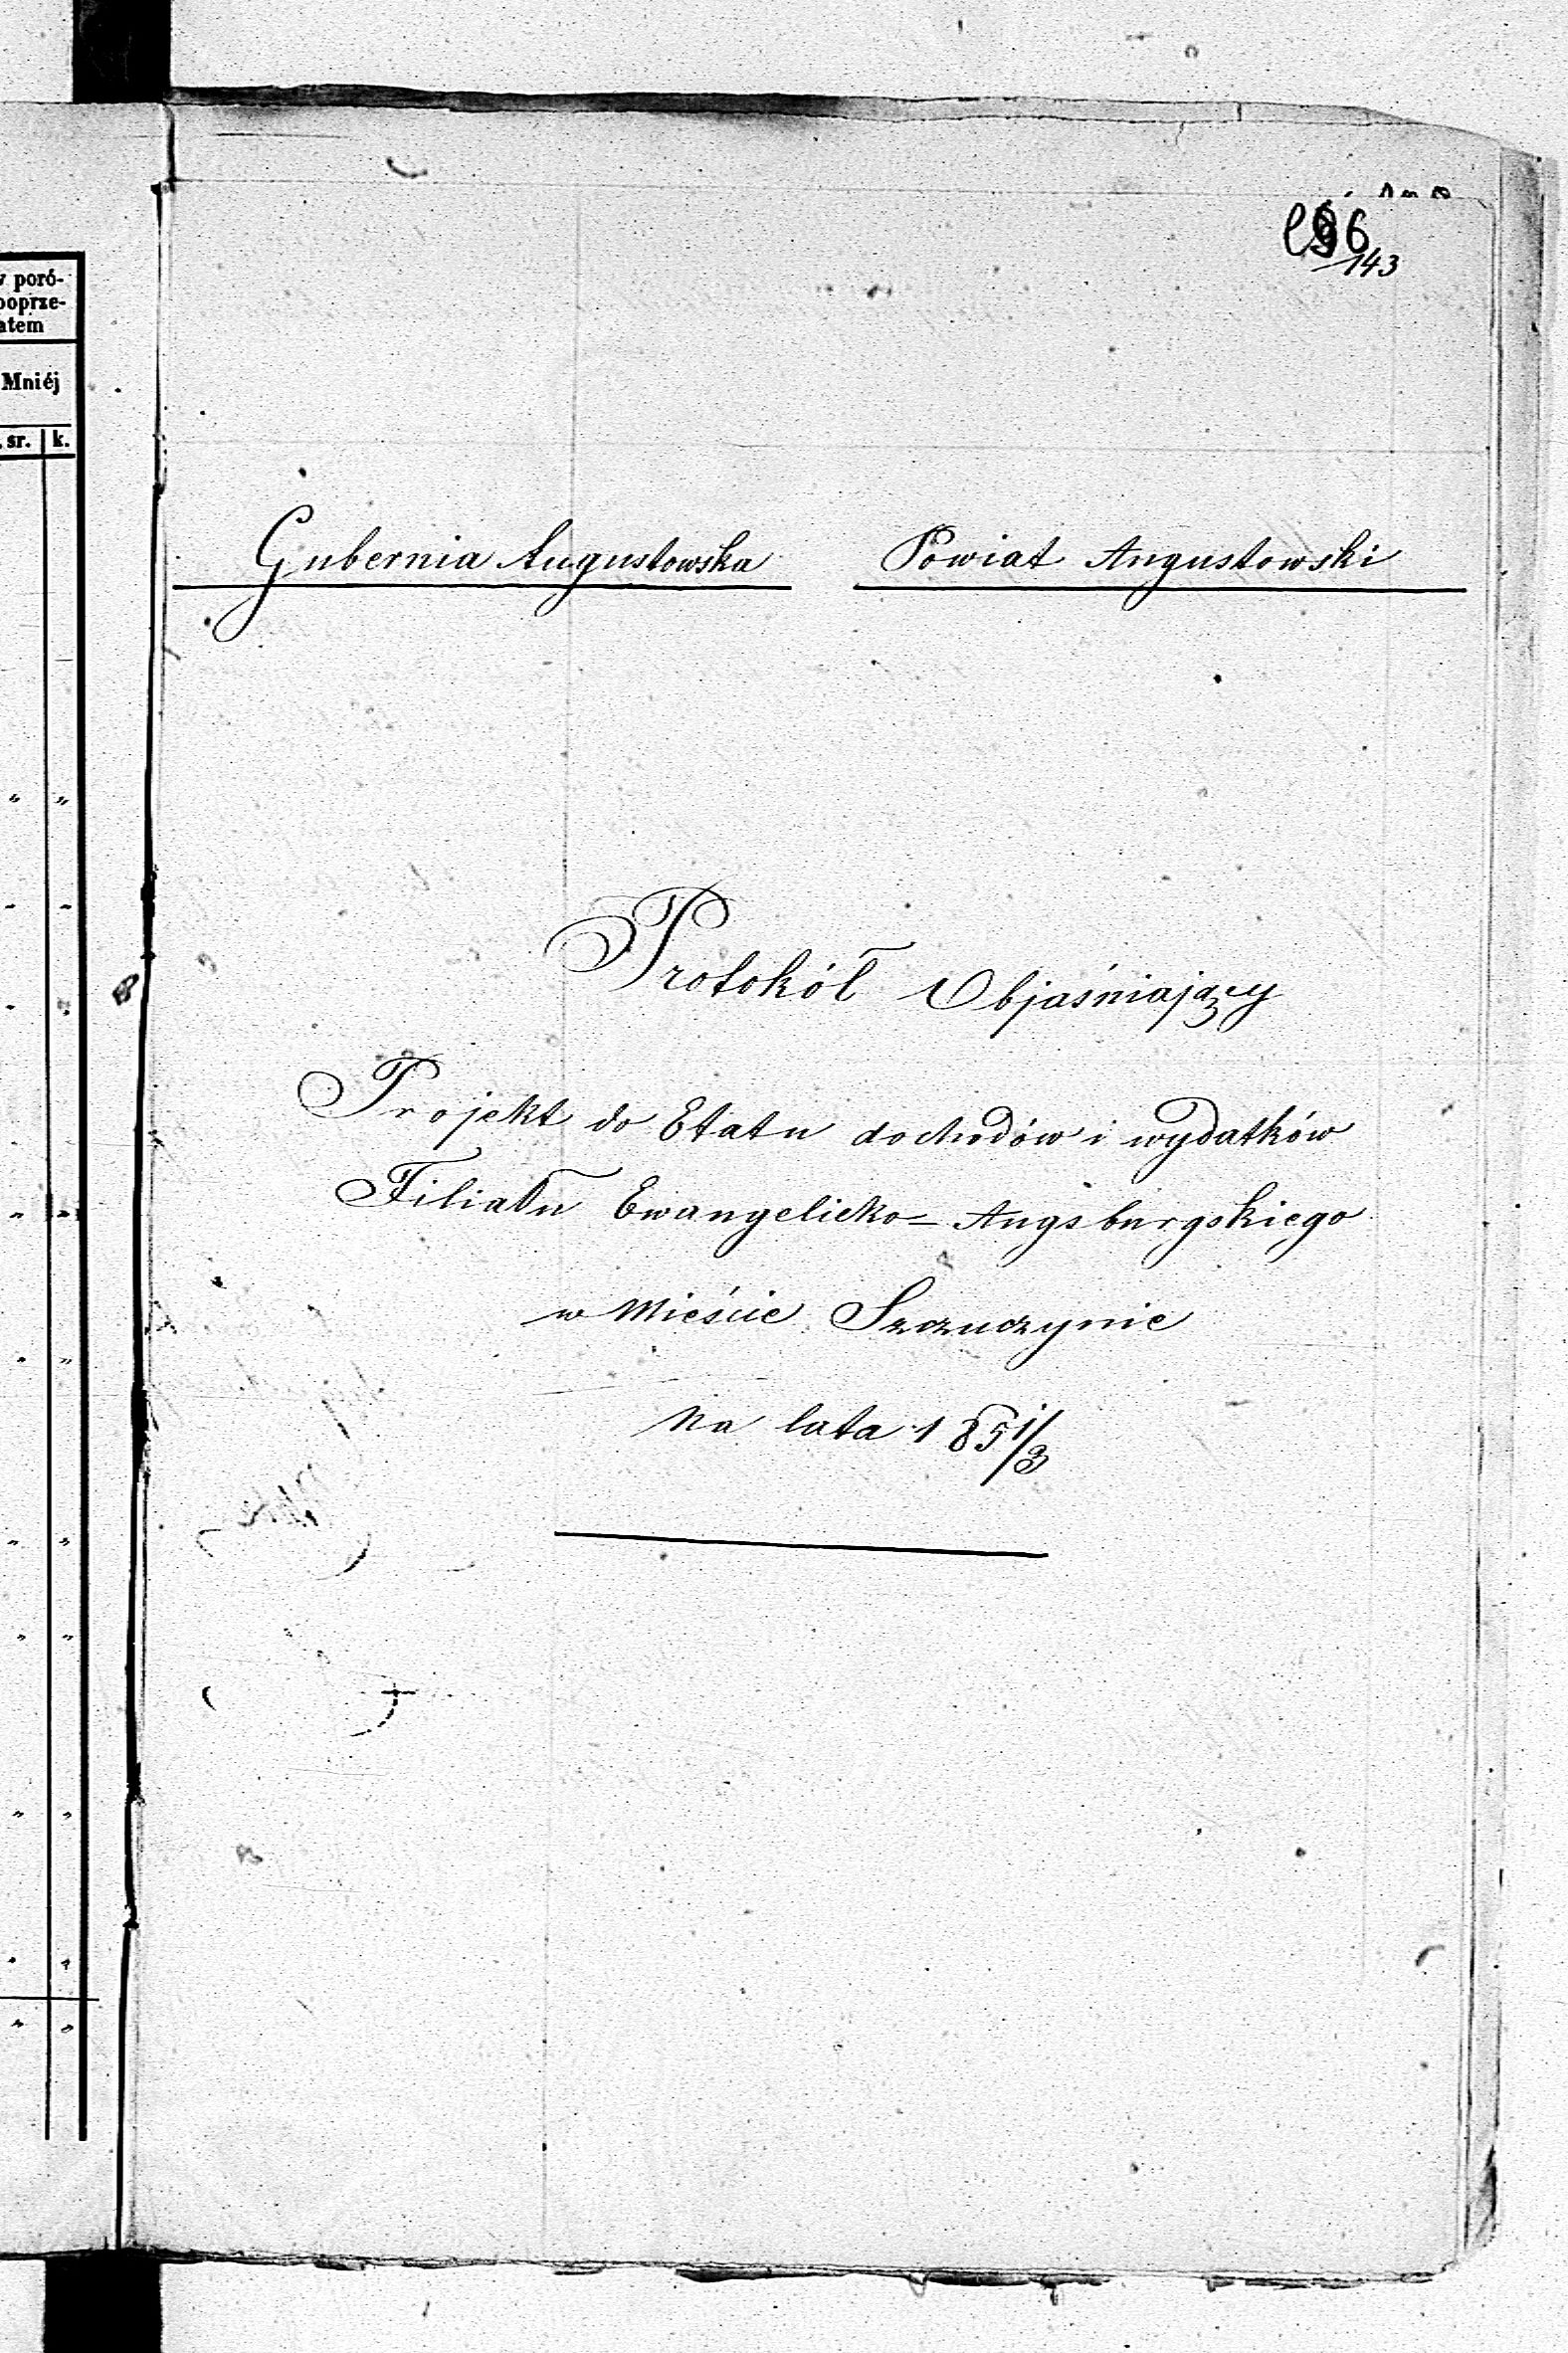 w poró-
poprze-
atem
Mniéj
sr. k.
143
Gubernia Augustowska Powiat Augustowski
Protokół Objaśniający
Projekt do Etatu dochodów i wydatków
Filiału Ewangelicko= Augsburgskiego
w Mieście Szczuczynie
Na lata 1851/3